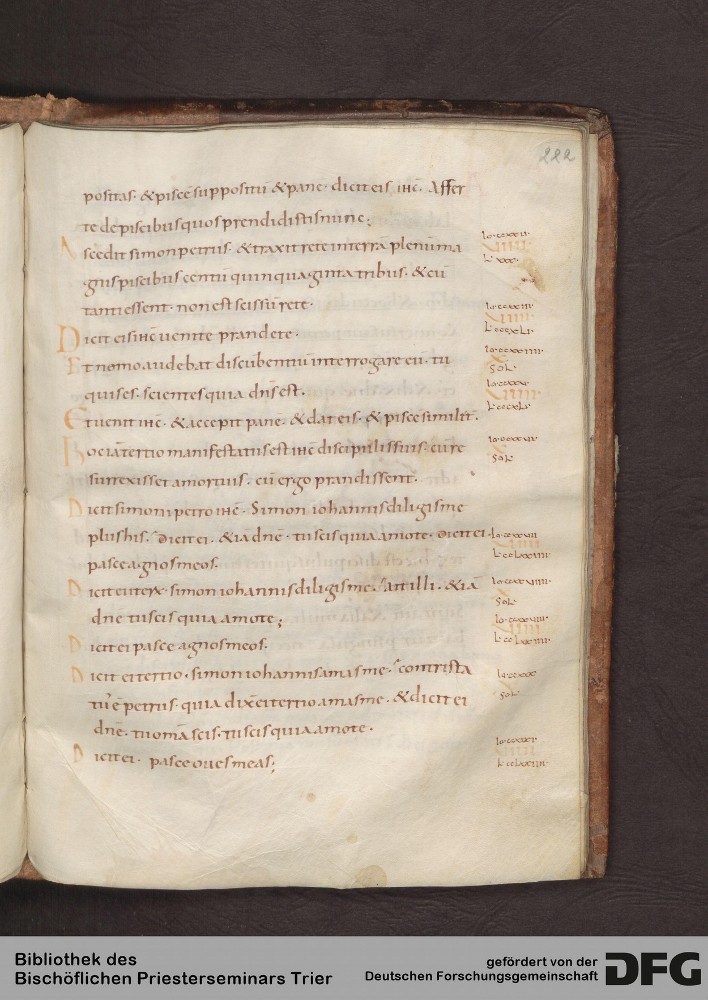 222
positas · & piscē suppositū & pane · dicit eis ihc̄ Affer
te de piscibus quos prendidistis nunc ;
Ascedit simon petrus · & traxit rete in terrā plenū ma
gnis piscibus centū quinquaginta tribus · & cū
tanti essent · non est scissū rete ·
Dicit eis ihc̄ uenite prandete ·
Et nemo audebat discūbentiū interrogare eū · tu
quis es · scientes quia dn̄s est ·
Et uenit ihc̄ · & accepit pane · & dat eis · & pisce similit̄ ·
Hoc iā tertio manifestatus est ihc̄ discipulis suis · cū re
surrexisset a mortuis · cū ergo prandissent ·
Dicit simoni petro ihc̄ · Simon iohannis diligis me
plus his · dicit ei · & iā dn̄e · tu scis quia amo te · dicit ei ·
pasce agnos meos ·
Dicit ei iterū simon iohannis diligis me · ait illi · & iā
dn̄e tu scis quia amo te ;
Dicit ei pasce agnos meos ·
Dicit ei tertio · simon iohannis amas me · contrista
tus ē petrus · quia dix̄ ei tertio amas me · & dicit ei
dn̄e · tu om̄a scis · tu scis quia amo te ·
Dicit ei · pasce oues meas ;
Bibliothek des
Bischöflichen Priesterseminars Trier
gefördert von der
Deutschen Forschungsgemeinschaft
DFG